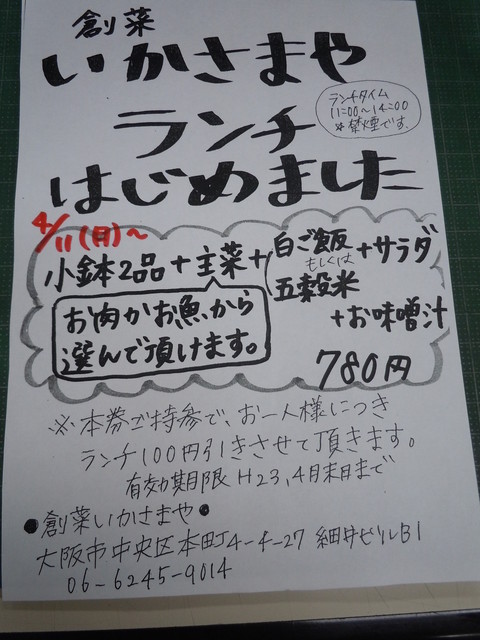 創菜
いかさまや
ランチタイム
11:00〜14:00
※禁煙です。
ランチ
はじめました
4/11(月)〜
小鉢2品+主菜+白ご飯もしくは五穀米+サラダ+お味噌汁
お肉かお魚から
選んで頂けます。
780円
※本券ご持参で、お一人様につき
ランチ100円引きさせて頂きます。
有効期限 H23,4月末日まで
●創菜いかさまや●
大阪市中央区本町4-4-27 細井ビルB1
06-6245-9014